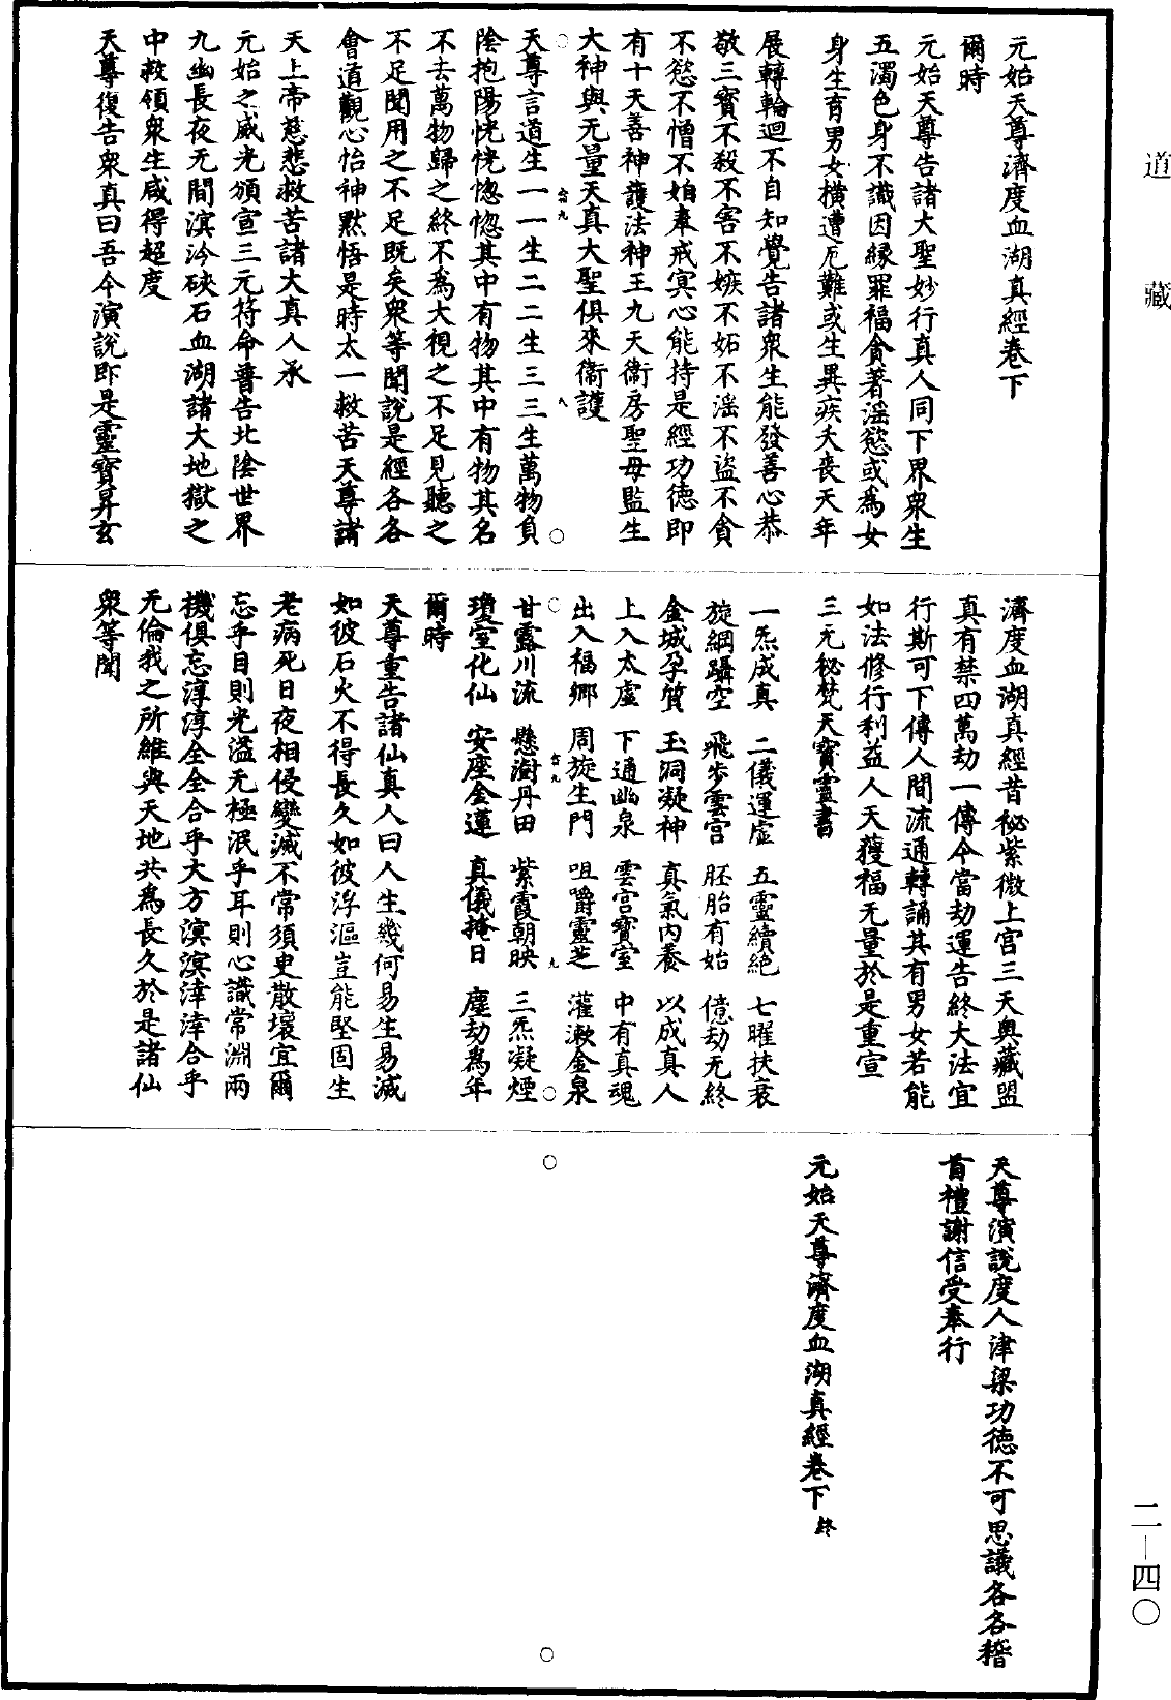 道藏
元始天尊濟度血湖真經卷下
爾時
元始天尊告諸大聖妙行真人同下界衆生
五濁色身不識因緣罪福貪著滛慾或為女
身生育男女橫遭厄難或生異疾夭喪天年
展轉輪迴不自知覺告諸衆生能發善心恭
敬三寶不殺不害不嫉不妬不滛不盜不貪
不慾不憎不妲奉戒冥心能持是經功德即
有十天善神護法神王九天衛房聖母監生
大神與无量天真大聖俱來衛護
天尊言道生一一生二二生三三生萬物負
陰抱陽恍恍惚惚其中有物其中有物其名
不去萬物歸之終不為大視之不足見聽之
不足聞用之不足既矣衆等聞說是經各各
會道觀心怡神默悟是時太一救苦天尊諸
天上帝慈悲救苦諸大真人承
元始之威光頒宣三元符命普告北陰世界
九幽長夜无間溟泠硤石血湖諸大地獄之
中救領衆生咸得超度
天尊復告衆真曰吾今演說即是靈寶昇玄
濟度血湖真經昔秘紫微上宫三天奥藏盟
真有禁四萬劫一傳今當劫運告終大法宜
行斯可下傳人間流通轉誦其有男女若能
如法修行利益人天獲福无量於是重宣
三元秘梵天寶靈書
一炁成真 二儀運虛 五靈續絕 七曜扶衰
旋綱躡空 飛步雲宫 胚胎有始 億劫无終
金城孕質 玉洞凝神 真氣内養 以成真人
上入太虛 下通幽泉 雲宫寶室 中有真魂
出入福鄉 周旋生門 咀嚼靈芝 灌漱金泉
甘露川流 懸澍丹田 紫霞朝映 三炁凝煙
瓊室化仙 安座金蓮 真儀掩日 塵劫為年
爾時
天尊重告諸仙真人曰人生幾何易生易滅
如彼石火不得長久如彼浮漚豈能堅固生
老病死日夜相侵變滅不常須臾散壞宜爾
忘乎目則光溢无極泯乎耳則心識常淵兩
機俱忘淳淳全全合乎大方溟溟涬涬合乎
无倫我之所維與天地共為長久於是諸仙
衆等聞
天尊演說度人津梁功德不可思議各各稽
首禮謝信受奉行
元始天尊濟度血湖真經卷下 終
二—四〇